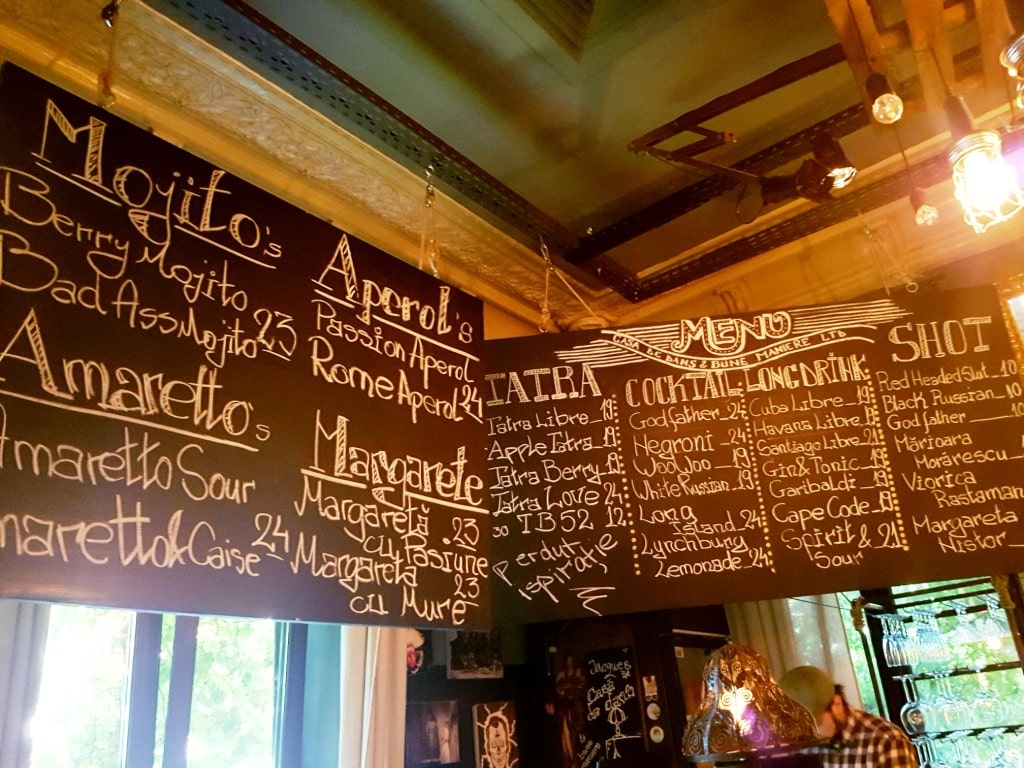 Mojito's
Berry Mojito
Bad Ass Mojito 23
Amaretto's
Amaretto Sour
Amaretto & Caise 24
Aperol's
Passion Aperol
Rome Aperol 24
Margarete
Margaretă
cu Pasiune 23
Margareta
cu Mure 23
MENU
CASA DE DANS & BUNE MANIERE LTD
TATRA
Tatra Libre 19
Apple Tatra 19
Tatra Berry 19
Tatra Love 24
TB52 12
Perdut
ispirație,
COCKTAIL
Godfather 24
Negroni 24
WooWoo 19
White Russian 19
Long
Island 24
Lynchburg
Lemonade 24
LONGDRINK
Cuba Libre 19
Havana Libre 19
Santiago Libre 21
Gin & Tonic 19
Garibaldi 19
Cape Code 19
Spirit & 21
Sour
SHOT
Red Headed Slut 10
Black Russian 10
Godfather 10
Mărioara
Morărescu
Viorica
Rastaman
Margareta
Nistor
Jacques
Casa